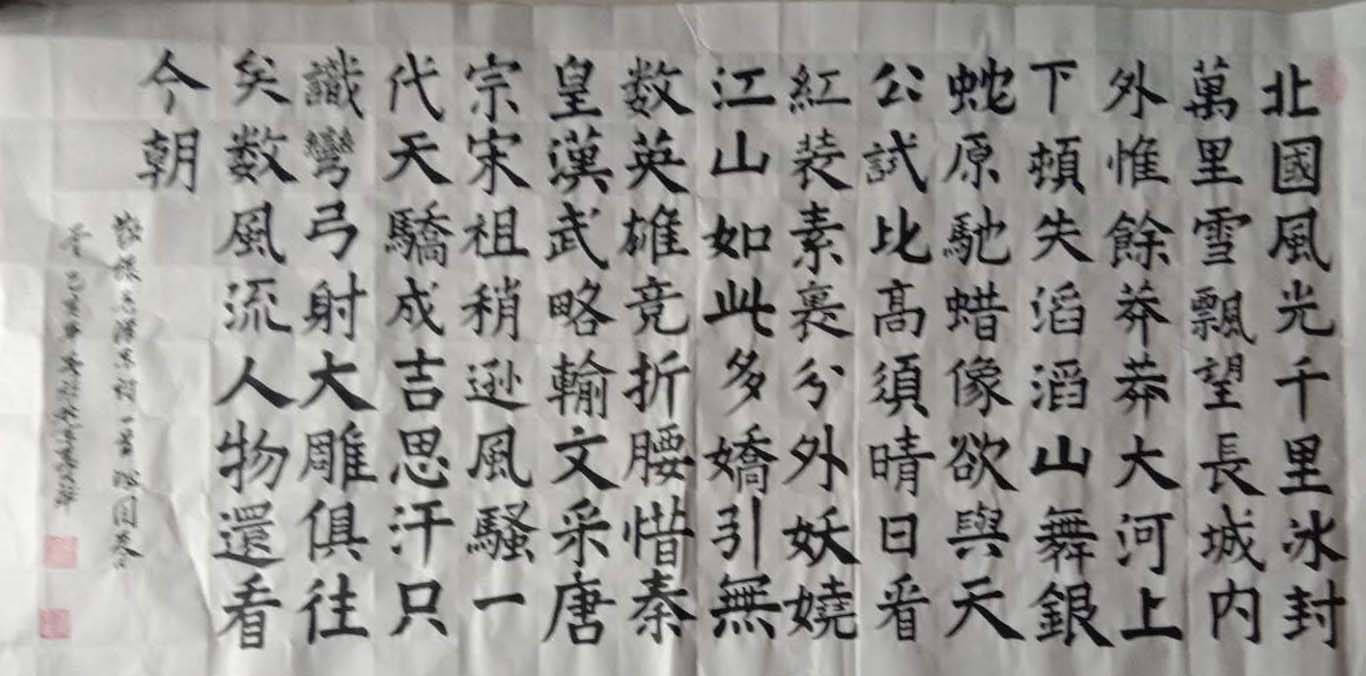 北國風光千里冰封
萬里雪飄望長城内
外惟餘莽莽大河上
下頓失滔滔山舞銀
蛇原馳蜡像欲與天
公試比高須晴日看
紅裝素裹分外妖嬈
江山如此多嬌引無
数英雄竞折腰惜秦
皇漢武略輸文采唐
宗宋祖稍逊風騷一
代天驕成吉思汗只
識彎弓射大雕俱往
矣数風流人物還看
今朝
毛澤东詞一首沁园春
雪 己亥年